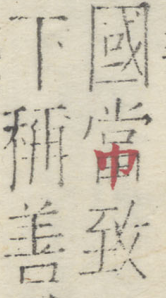 國當致
下稱善